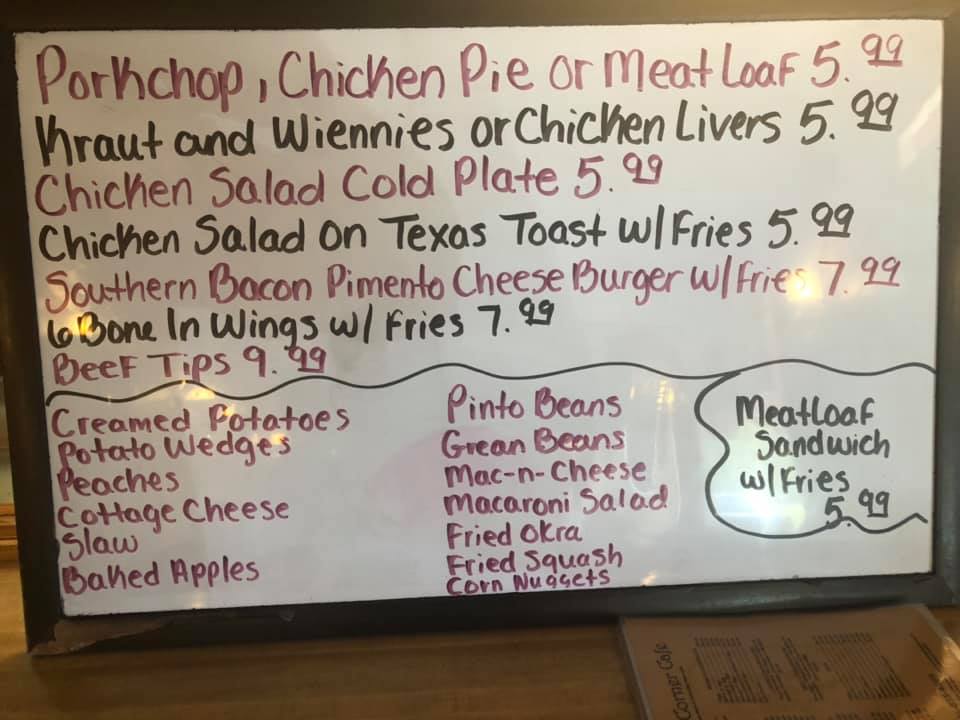 Porkchop, Chicken Pie or Meat Loaf 5.99
Kraut and Wiennies or Chicken Livers 5.99
Chicken Salad Cold Plate 5.99
Chicken Salad On Texas Toast w/ Fries 5.99
Southern Bacon Pimento Cheese Burger w/ Fries 7.99
6 Bone In Wings w/ Fries 7.99
Beef Tips 9.99
Creamed Potatoes
Potato Wedges
Peaches
Cottage Cheese
Slaw
Baked Apples
Pinto Beans
Grean Beans
Mac-n-Cheese
Macaroni Salad
Fried Okra
Fried Squash
Corn Nuggets
Meatloaf
Sandwich
w/ Fries
5.99
Corner Cafe